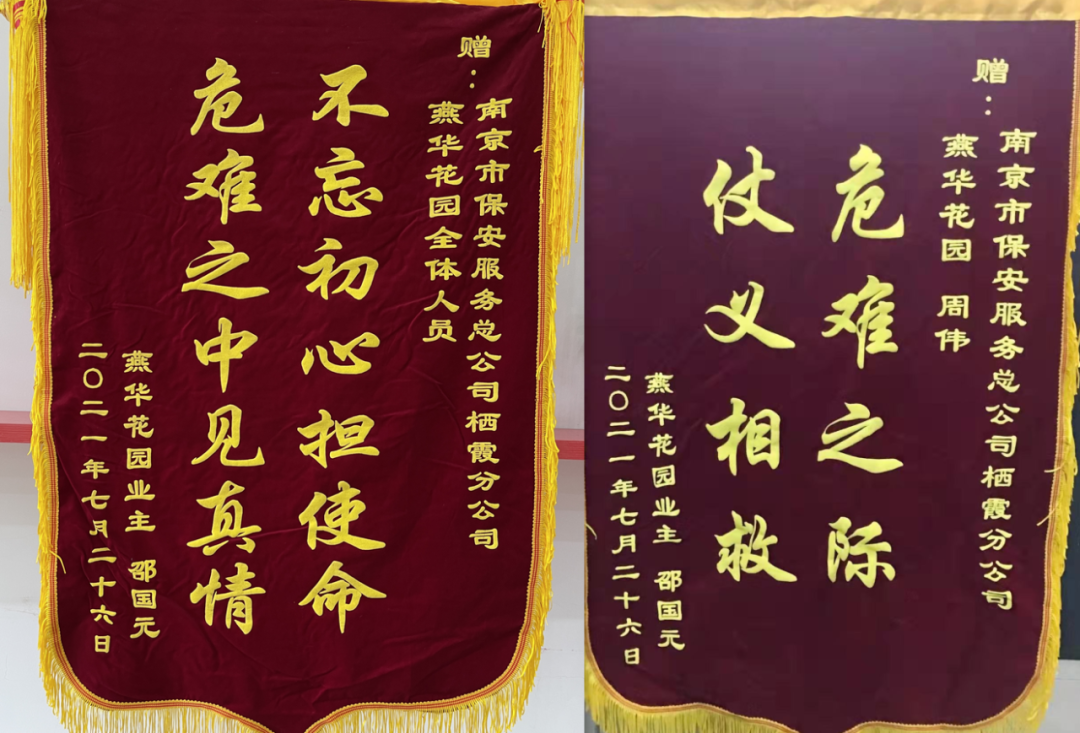 赠：
南京市保安服务总公司栖霞分公司
燕华花园全体人员
不忘初心担使命
危难之中见真情
燕华花园业主 邵国元
二〇二一年七月二十六日
赠：
南京市保安服务总公司栖霞分公司
燕华花园 周伟
危难之际
仗义相救
燕华花园业主 邵国元
二〇二一年七月二十六日